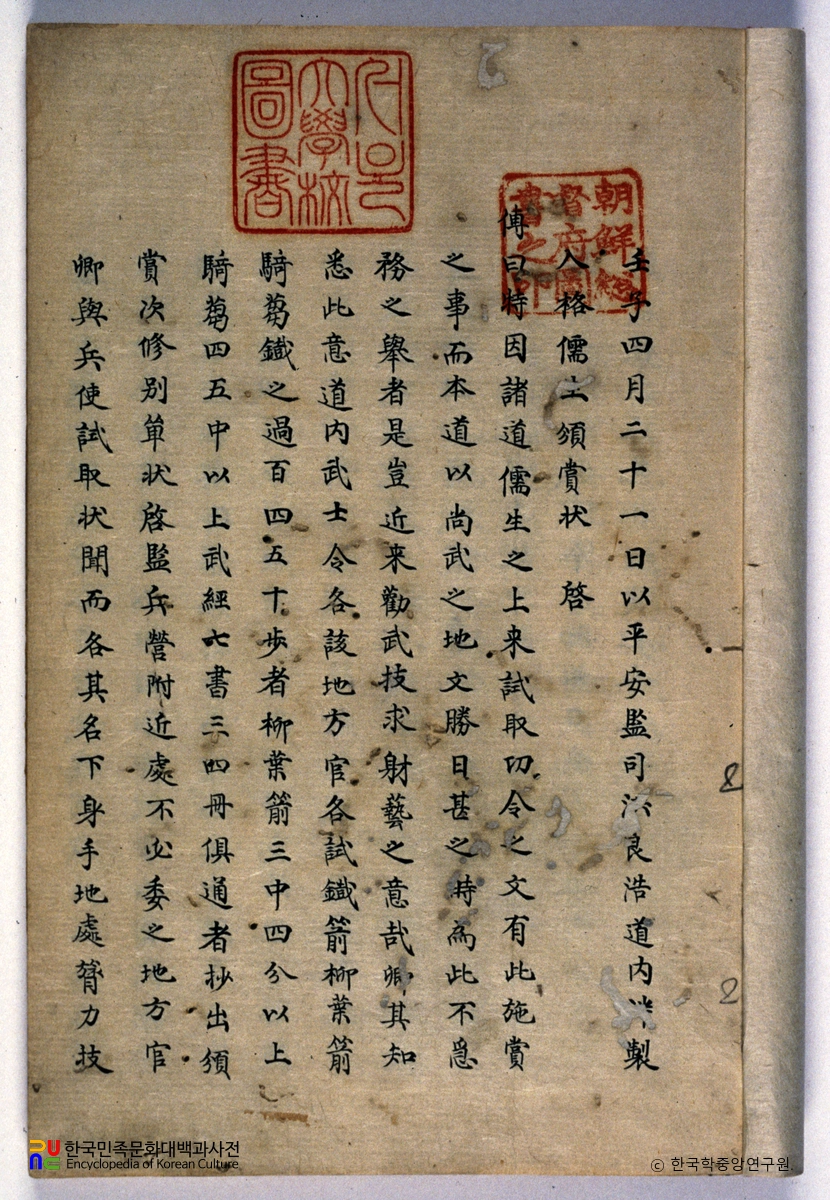 壬子四月二十一日以平安監司洪良浩道內 製
入格儒士頒賞狀 啓
傳曰特因諸道儒生之上来試取功令之文有此施賞
之事而本道以尚武之地文勝日甚之時為此不急
務之舉者是豈近来勸武技求射藝之意哉卿其知
悉此意道内武士令各該地方官各試鐵箭柳葉箭
騎蒭鐵之過百四五十步者柳葉箭三中四分以上
騎蒭四五中以上武經七書三四冊俱通者抄出頒
賞次修別單狀啓監兵營附近處不必委之地方官
卿與兵使試取狀聞而各其名下身手地處膂力技
朝鮮總督府圖書之印
大學校
圖書
한국민족문화대백과사전
Encyclopedia of Korean Culture
© 한국학중앙연구원